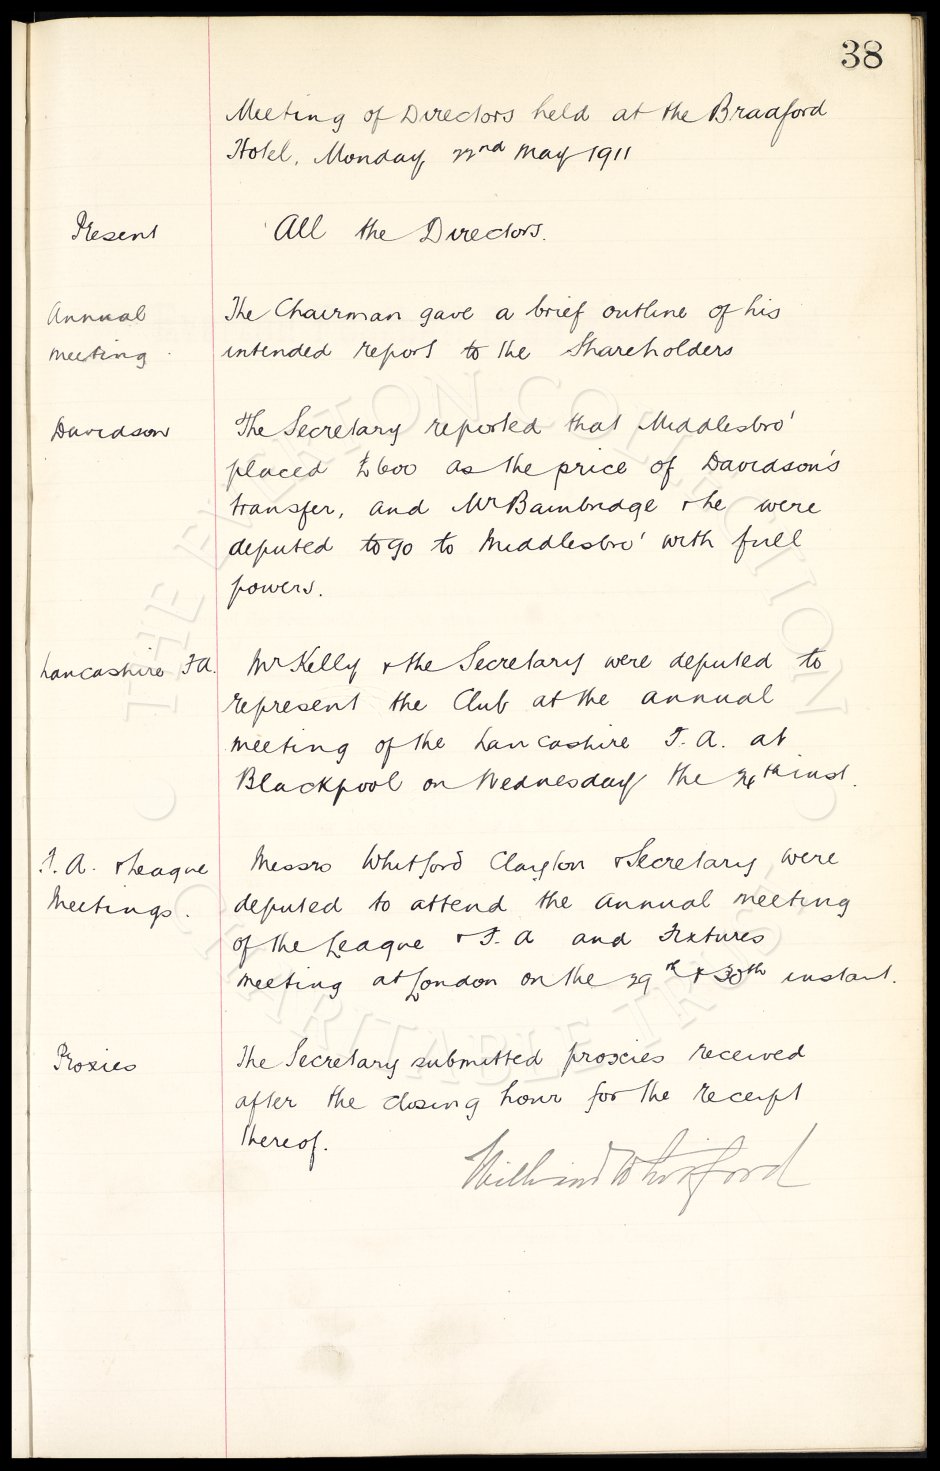 38
Meeting of Directors held at the Bradford
Hotel, Monday, 22nd May 1911
Present
All the Directors.
Annual
meeting.
The Chairman gave a brief outline of his
intended report to the Shareholders
Davidson
The Secretary reported that Middlesbro'
placed £600 as the price of Davidson's
transfer, and Mr Bainbridge & he were
deputed to go to Middlesbro' with full
powers.
Lancashire F.A.
Mr Kelly & the Secretary were deputed to
represent the Club at the annual
meeting of the Lancashire F. A. at
Blackpool on Wednesday the 24th inst.
F. A. & League
Meetings.
Messrs Whitford Clayton & Secretary were
deputed to attend the annual meeting
of the League & F. A and Fixtures
meeting at London on the 29th & 30th instant.
Proxies
The Secretary submitted proxies received
after the closing hour for the receipt
thereof.
William Whitford
THE EVERTON COLLECTION
CHARITABLE TRUST